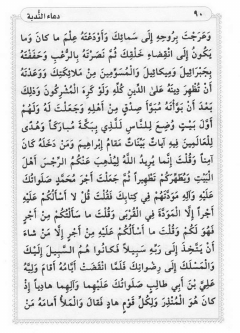 ٩٠ دعاء الندبة
وَعَرَجْتَ بِرُوحِهِ إِلَى سَمَائِكَ وَأَوْدَعْتَهُ عِلْمَ ما كانَ وَما
يَكُونُ إِلَى انْقِضاءِ خَلْقِكَ ثُمَّ نَصَرْتَهُ بِالرُّعْبِ وَحَفَفْتَهُ
بِجَبْرَائِيلَ وَمِيكائِيلَ وَالْمُسَوِّمِينَ مِنْ مَلائِكَتِكَ وَوَعَدْتَهُ
أَنْ تُظْهِرَ دِينَهُ عَلَى الدِّينِ كُلِّهِ وَلَوْ كَرِهَ الْمُشْرِكُونَ وَذلِكَ
بَعْدَ أَنْ بَوَّأْتَهُ مُبَوَّأَ صِدْقٍ مِنْ أَهْلِهِ وَجَعَلْتَ لَهُ وَلَهُمْ
أَوَّلَ بَيْتٍ وُضِعَ لِلنَّاسِ لَلَّذِي بِبَكَّةَ مُبارَكاً وَهُدًى
لِلْعالَمِينَ فِيهِ آياتٌ بَيِّناتٌ مَقامُ إِبْراهِيمَ وَمَنْ دَخَلَهُ كانَ
آمِناً وَقُلْتَ إِنَّما يُرِيدُ اللَّهُ لِيُذْهِبَ عَنْكُمُ الرِّجْسَ أَهْلَ
الْبَيْتِ وَيُطَهِّرَكُمْ تَطْهِيراً ثُمَّ جَعَلْتَ أَجْرَ مُحَمَّدٍ صَلَواتُكَ
عَلَيْهِ وَآلِهِ مَوَدَّتَهُمْ فِي كِتابِكَ فَقُلْتَ قُلْ لا أَسْأَلُكُمْ عَلَيْهِ
أَجْراً إِلَّا الْمَوَدَّةَ فِي الْقُرْبى وَقُلْتَ ما سَأَلْتُكُمْ مِنْ أَجْرٍ
فَهُوَ لَكُمْ وَقُلْتَ ما أَسْأَلُكُمْ عَلَيْهِ مِنْ أَجْرٍ إِلَّا مَنْ شاءَ
أَنْ يَتَّخِذَ إِلى رَبِّهِ سَبِيلاً فَكانُوا هُمُ السَّبِيلَ إِلَيْكَ
وَالْمَسْلَكَ إِلى رِضْوانِكَ فَلَمَّا انْقَضَتْ أَيَّامُهُ أَقامَ وَلِيَّهُ
عَلِيَّ بْنَ أَبِي طالِبٍ صَلَواتُكَ عَلَيْهِما وَآلِهِما هادِياً إِذْ
كانَ هُوَ الْمُنْذِرَ وَلِكُلِّ قَوْمٍ هادٍ فَقالَ وَالْمَلَأُ أَمامَهُ مَنْ